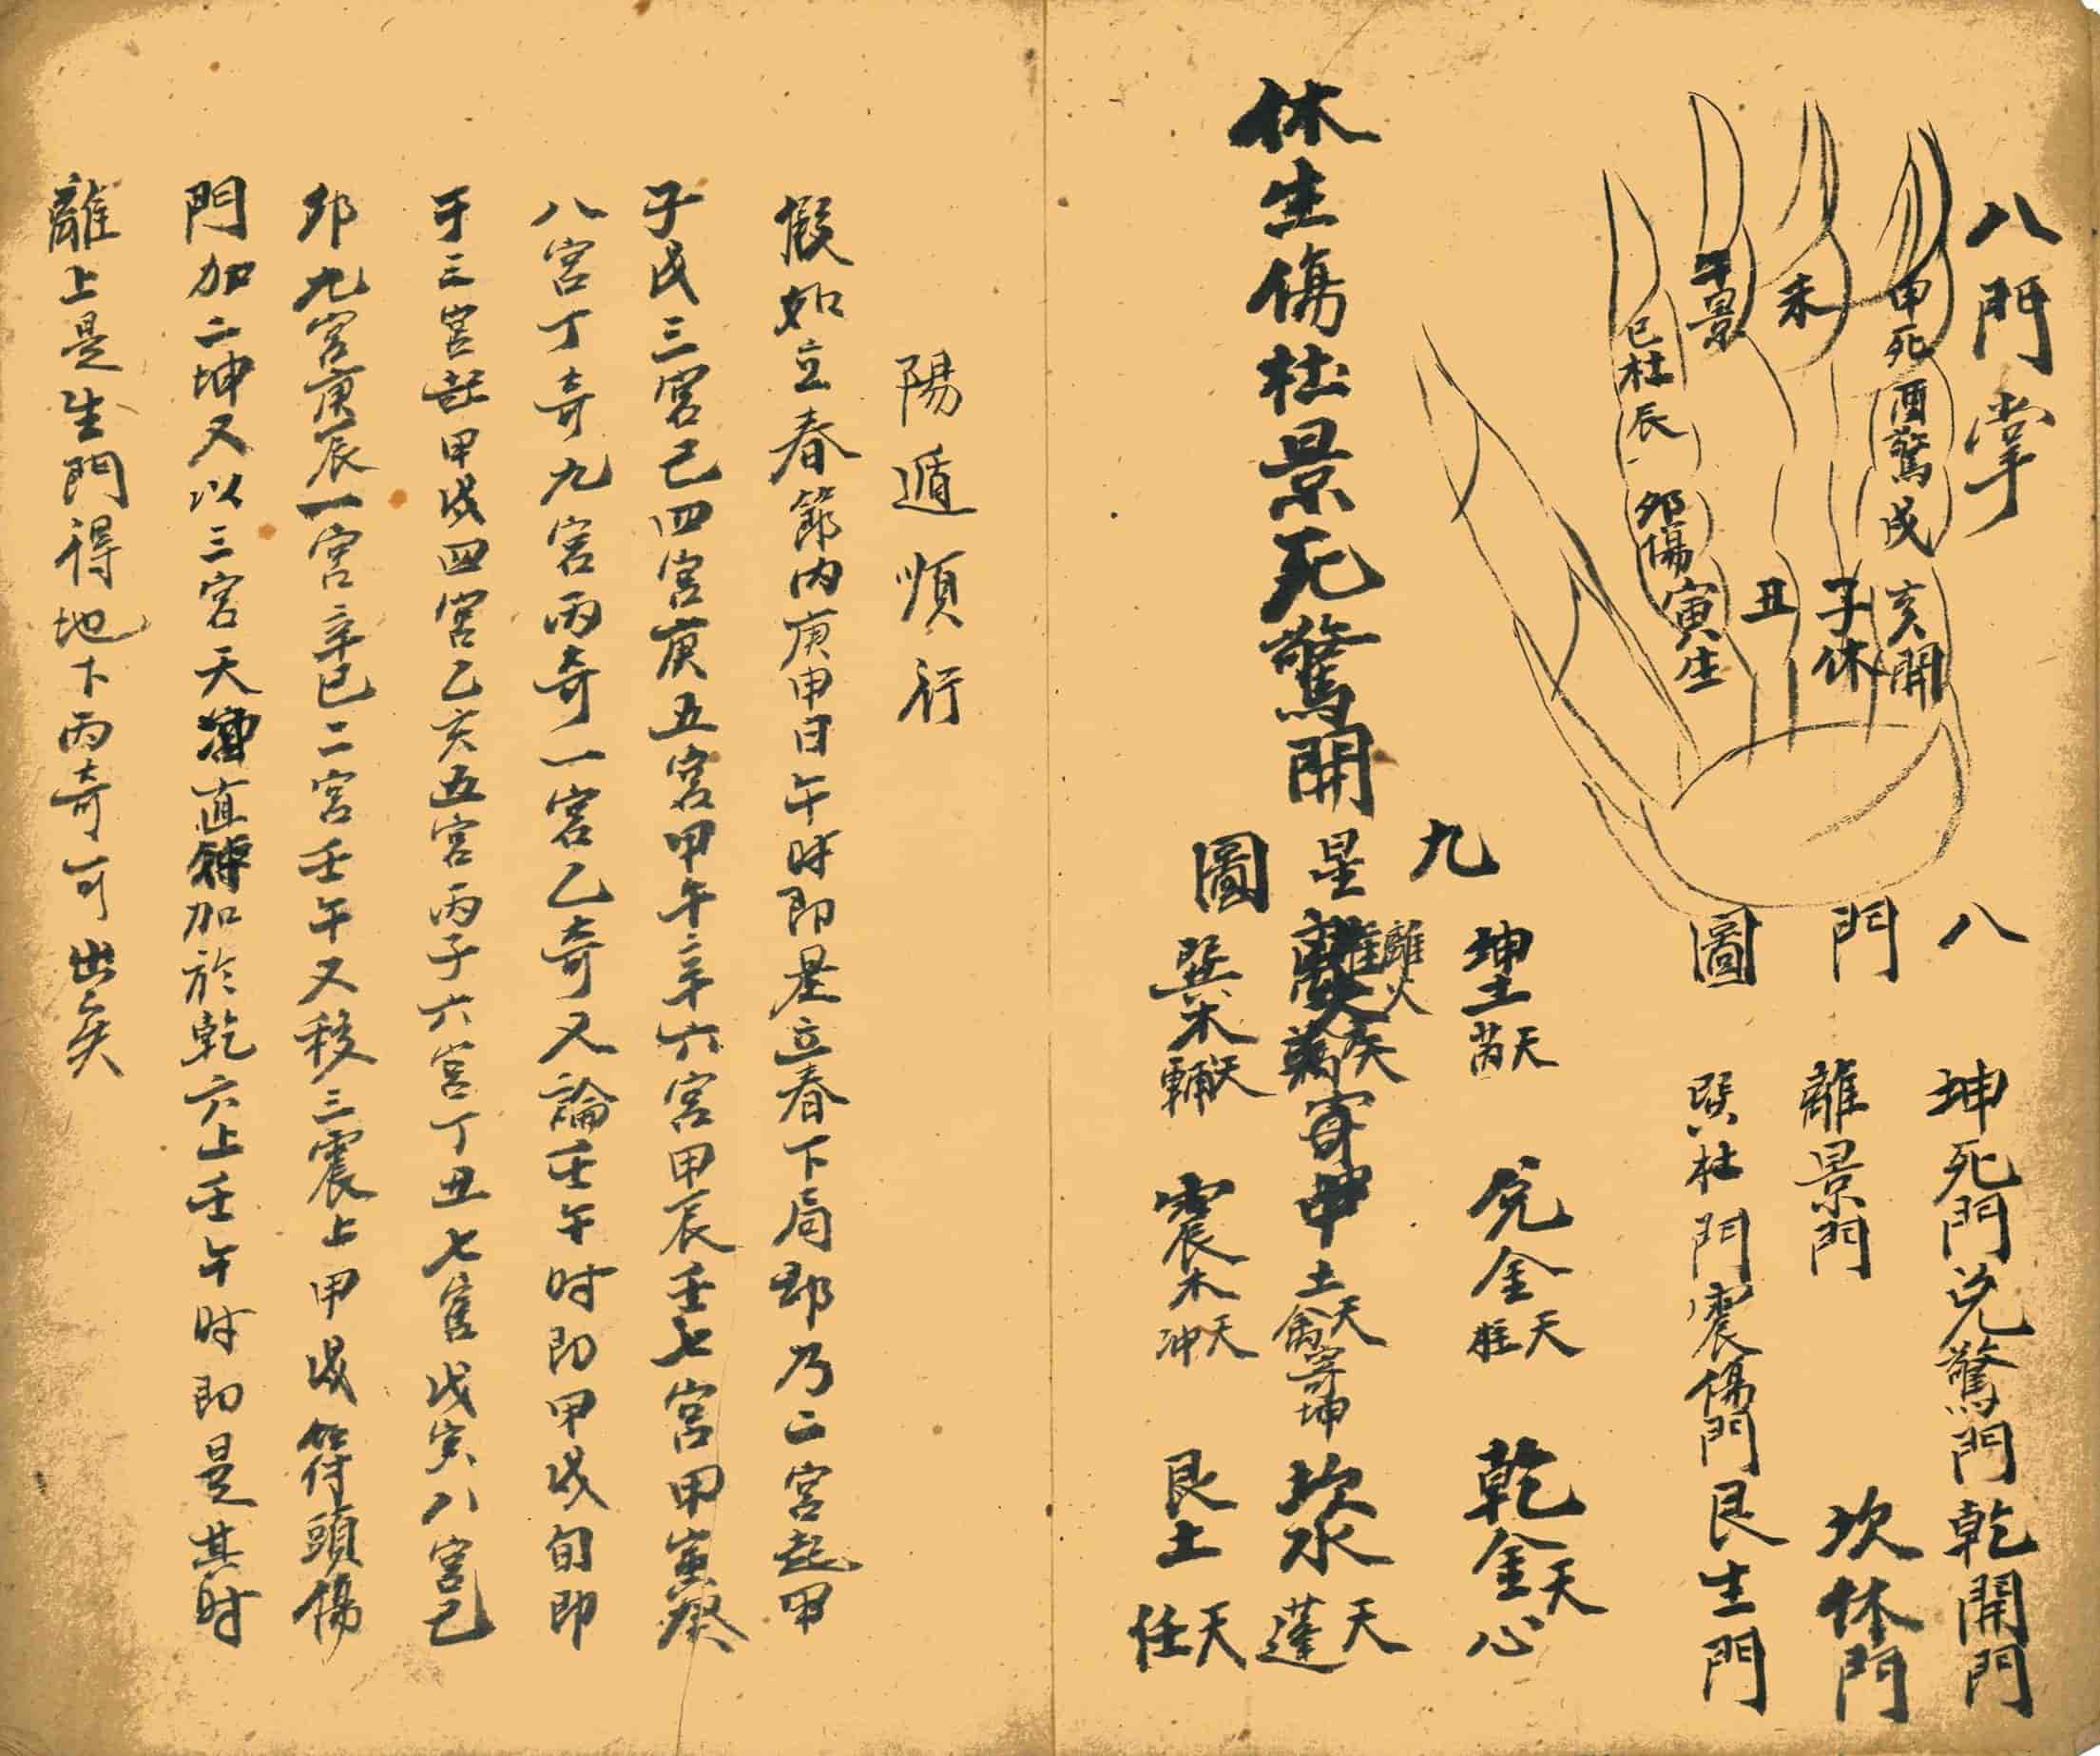 八門掌
申死
酉驚
戌
亥開
未
子休
午景
丑
巳杜
辰
卯傷
寅生
八門圖
坤死門兌驚門乾開門
離景門
坎休門
巽杜門震傷門艮生門
休生傷杜景死驚開
九星圖
坤土天芮
兌金天柱
乾金天心
離火
寄
中土天禽寄坤
坎水天蓬
巽木天輔
震木天冲
艮土天任
陽遁順行
假如立春節內庚申日午时即是立春下局郎乃二宮起甲
子戊三宮己四宮庚五宮甲午辛六宮甲辰壬七宮甲寅癸
八宮丁奇九宮丙奇一宮乙奇又論壬午时即甲戌旬即
于三宮起甲戌四宮乙亥五宮丙子六宮丁丑七宮戊寅八宮己
卯九宮庚辰一宮辛巳二宮壬午又移三震上甲戌符頭傷
門加二坤又以三宮天直加於乾六上壬午时即是其时
離上是生門得地下丙奇可出矣